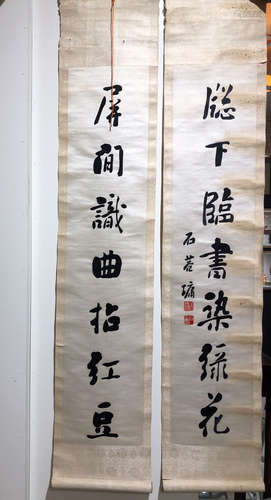 牕下臨書染綠花
石
屏間識曲拈紅豆